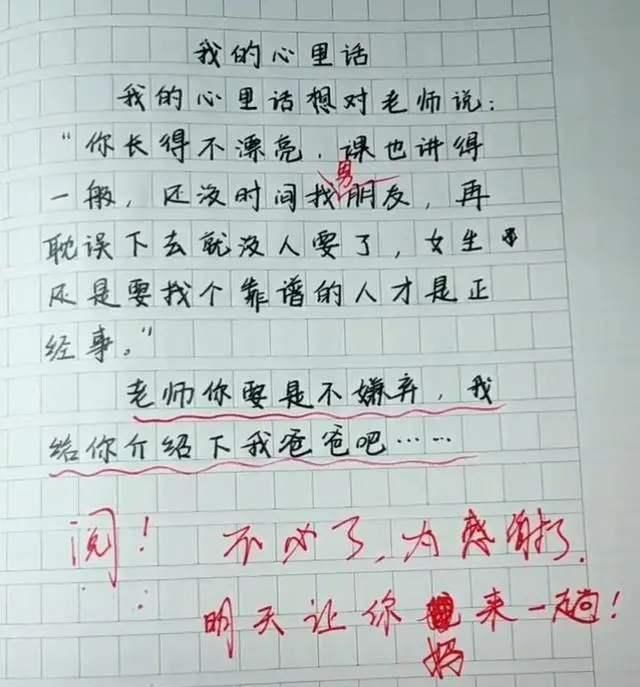 我的心里话
我的心里话想对老师说：
“你长得不漂亮，课也讲得
一般，还没时间找男朋友，再
耽误下去就没人要了，女生
还是要找个靠谱的人才是正
经事。”
老师你要是不嫌弃，我
给你介绍下我爸爸吧……
阅！不必了，太感谢了.
明天让你妈来一趟！